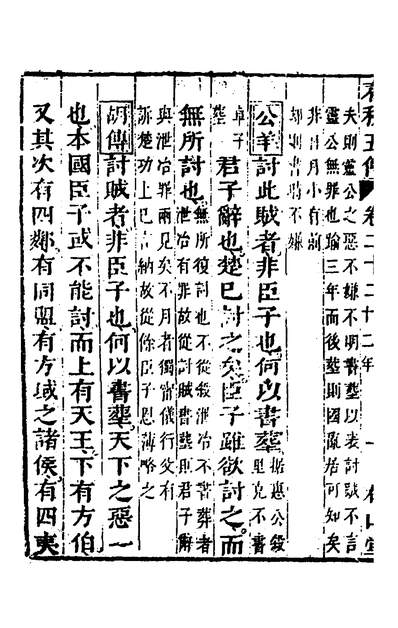 春秋五傳 卷二十二 十二年 一 山堂
夫則靈公之惡不嫌不明書葬以表討賊不言
靈公無罪也踰三年而後葬則國亂居可知矣
非日月小有前
卻則書時不嫌
公羊討此賊者非臣子也何以書葬據惠公殺
里克不書
卓子
葬
君子辭也楚已討之矣臣子雖欲討之而
無所討也無所復討也不從殺泄冶不書葬者
泄冶有罪故從討賊書葬則君子辭
與泄冶罪兩見矣不月者獨甯儀行父有
訴楚功上已言納故從餘臣子恩薄略之
胡傳討賊者非臣子也何以書葬天下之惡一
也本國臣子或不能討而上有天王下有方伯
又其次有四鄰有同盟有方域之諸侯有四夷